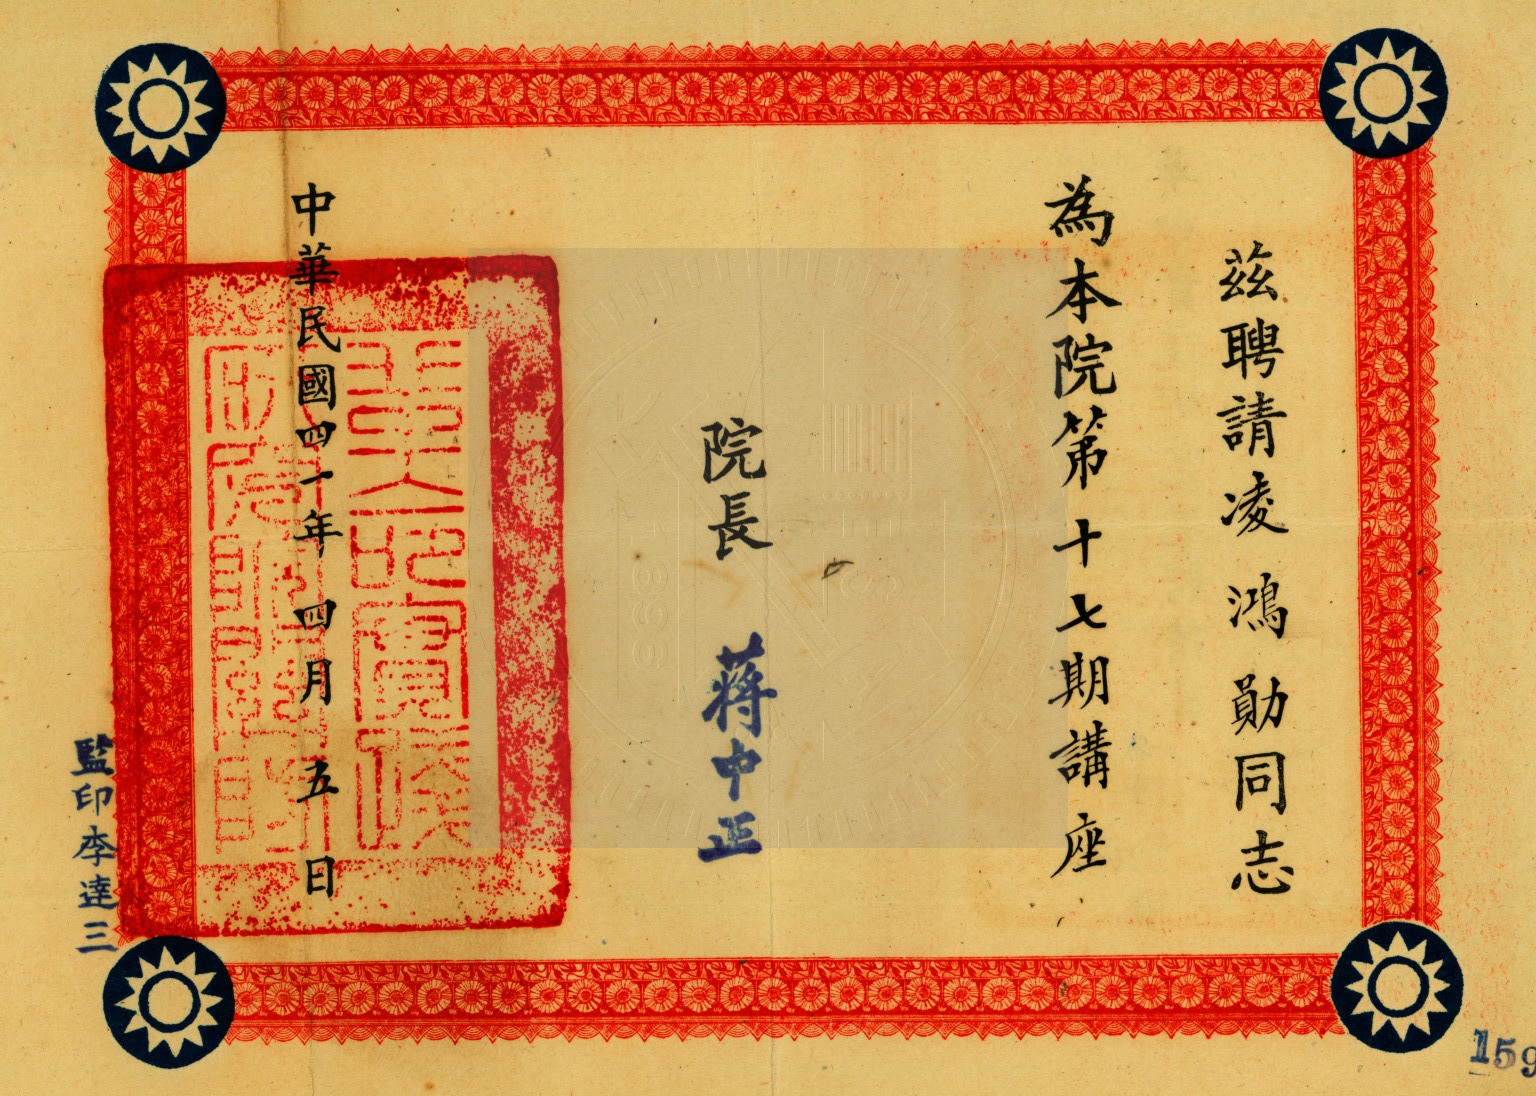 茲聘請凌鴻勛同志
為本院第十七期講座
院長 蔣中正
中華民國四十一年四月五日
監印李達三
159